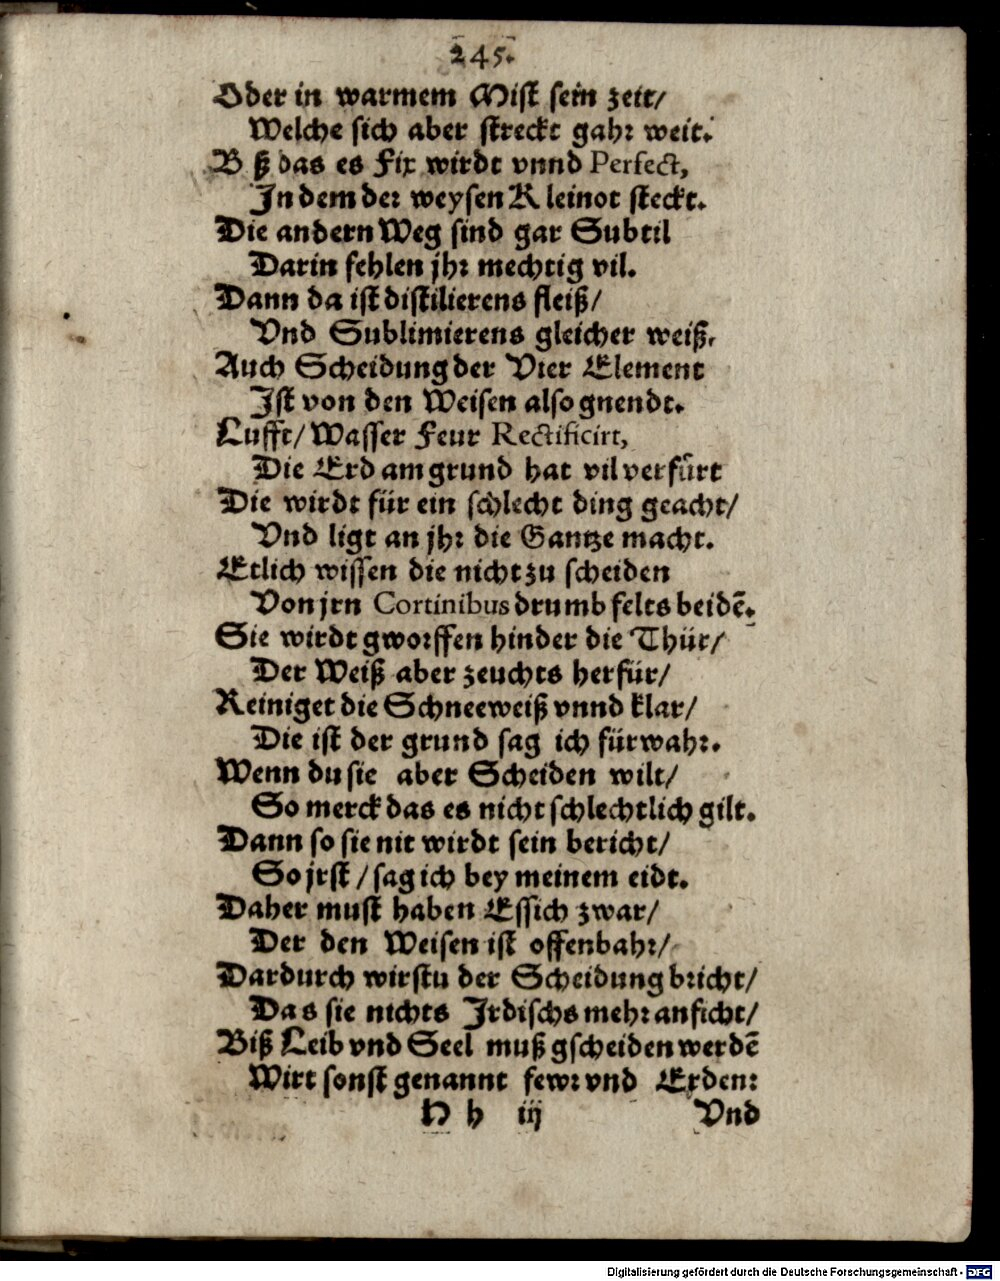 245.
Oder in warmem Mist sein zeit/
Welche sich aber streckt gahr weit.
B ß das es Fix wirdt vnnd Perfect,
In dem der weysen Kleinot steckt.
Die andern Weg sind gar Subtil
Darin fehlen jhr mechtig vil.
Dann da ist distilierens fleiß/
Vnd Sublimierens gleicher weiß,
Auch Scheidung der Vier Element
Ist von den Weisen also gnendt.
Lufft/ Wasser Feur Rectificirt,
Die Erd am grund hat vil verfürt
Die wirdt für ein schlecht ding geacht/
Vnd ligt an jhr die Gantze macht.
Etlich wissen die nicht zu scheiden
Von jrn Cortinibus drumb felts beidē.
Sie wirdt gworffen hinder die Thür/
Der Weiß aber zeuchts herfür/
Reiniget die Schneeweiß vnnd klar/
Die ist der grund sag ich fürwahr.
Wenn du sie aber Scheiden wilt/
So merck das es nicht schlechtlich gilt.
Dann so sie nit wirdt sein bericht/
So jrst / sag ich bey meinem eidt.
Daher must haben Essich zwar/
Der den Weisen ist offenbahr/
Dardurch wirstu der Scheidung bricht/
Das sie nichts Irdischs mehr anficht/
Biß Leib vnd Seel muß gscheiden werdē
Wirt sonst genannt fewr vnd Erden:
H h iij Vnd
Digitalisierung gefördert durch die Deutsche Forschungsgemeinschaft - DFG